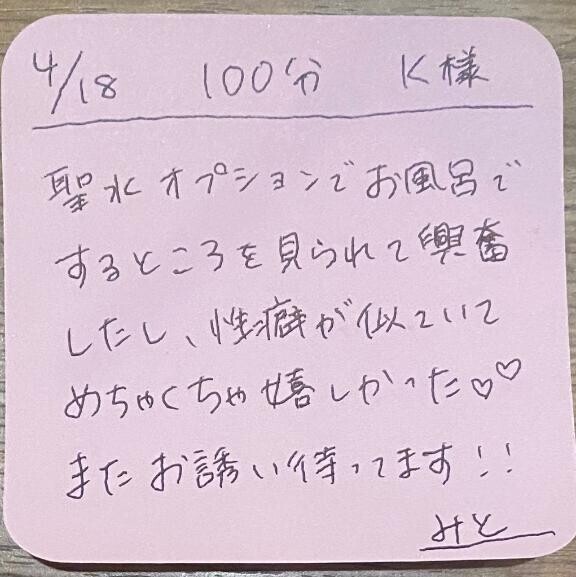 4/18 100分 K様
聖水オプションでお風呂で
するところを見られて興奮
したし、性癖が似ていて
めちゃくちゃ嬉しかった♡♡
またお誘い待ってます!!
みと